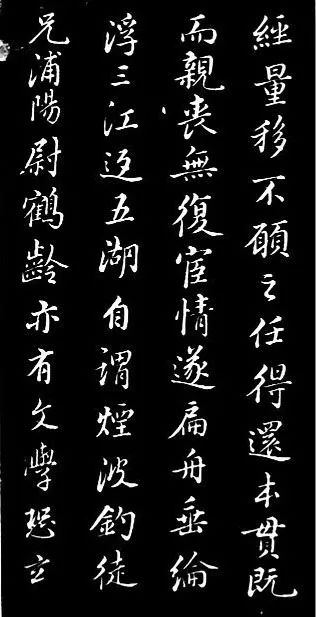 經量移不願之任得還本貫既
而親喪無復宦情遂扁舟垂綸
浮三江泛五湖自謂煙波釣徒
兄浦陽尉鶴齡亦有文學恐玄